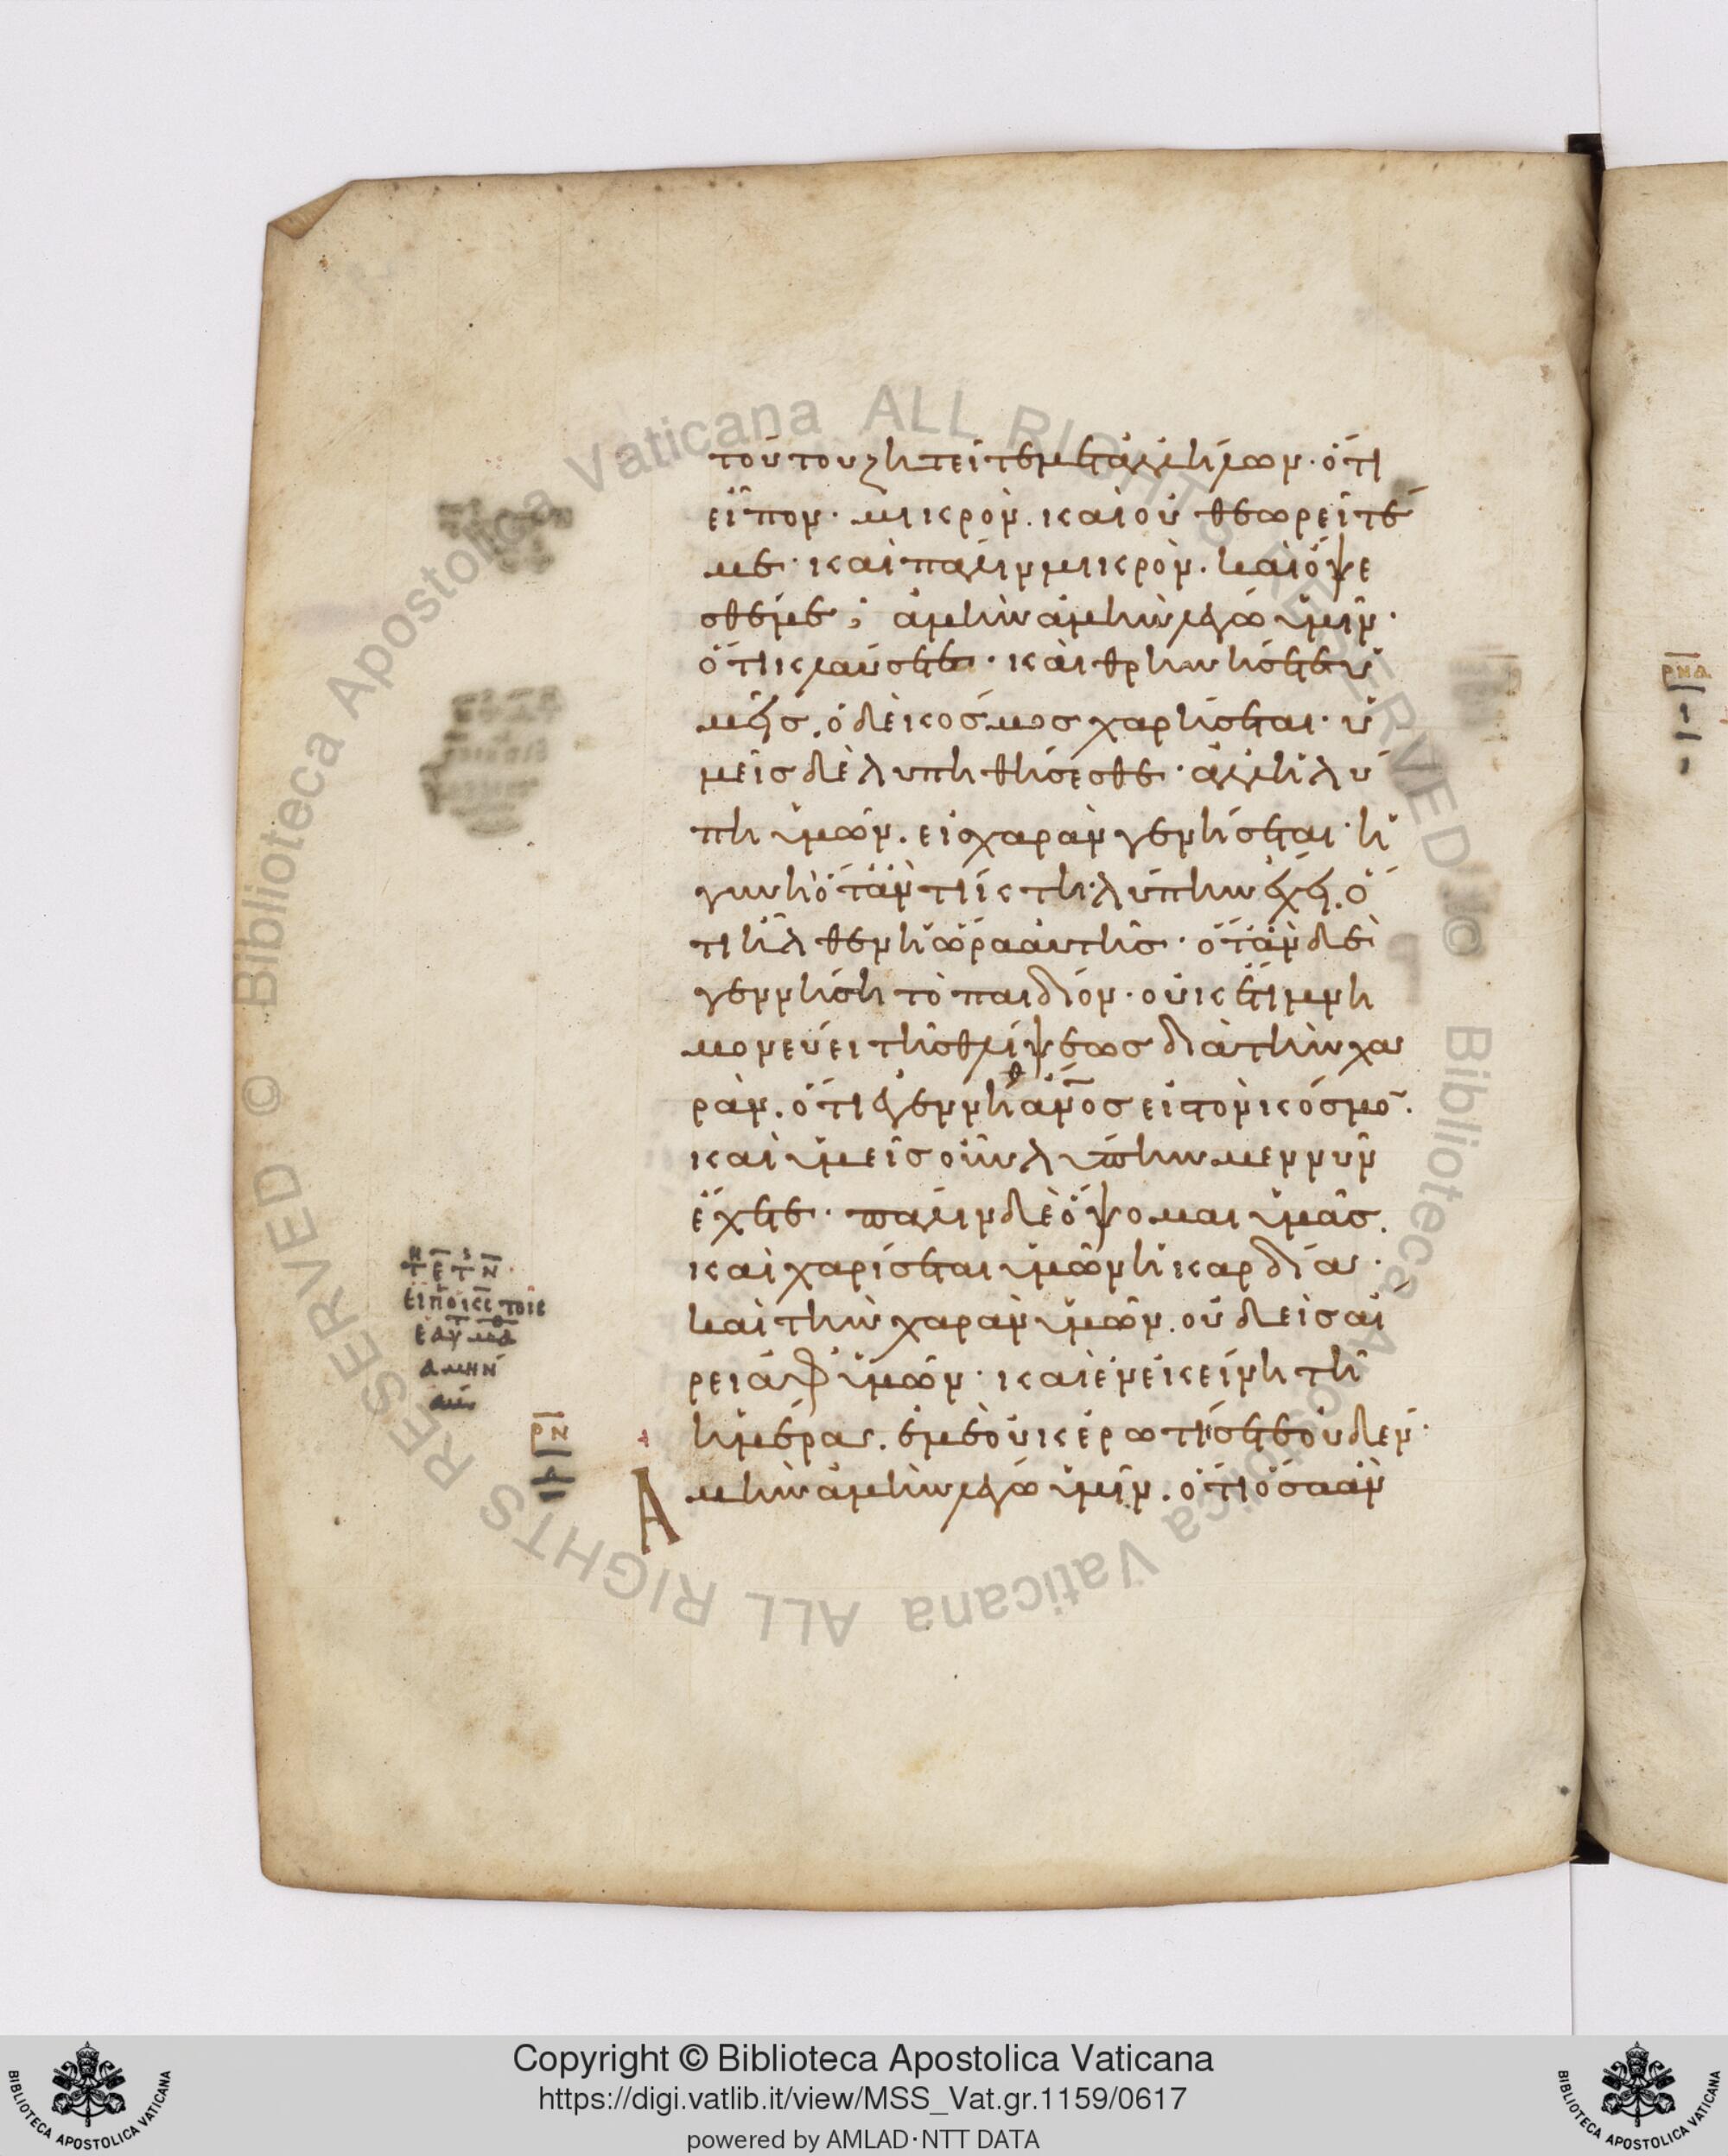 τούτου ζητεῖτε μετ ἀλλήλων· ὅτι
εἶπον· μικρὸν. καὶ οὐ θεωρεῖτέ
με· καὶ πάλιν μικρὸν. καὶ ὄψε
σθέ με; ἀμὴν ἀμὴν λέγω ὑμῖν·
ὅτι κλαύσετε· καὶ θρηνήσετε ὑ
μεῖς. ὁ δὲ κόσμος χαρήσεται· ὑ
μεῖς δὲ λυπηθήσεσθε· ἀλλ ἡ λύ
πη ὑμῶν. εἰς χαρὰν γενήσεται· ἡ
γυνὴ ὅταν τίκτη λύπην ἔχει. ὅ
τι ἦλθεν ἡ ὥρα αὐτῆς· ὅταν δὲ
γεννήση τὸ παιδίον· οὐκ ἔτι μνη
μονεύει τῆς θλίψεως διὰ τὴν χα
ρὰν. ὅτι ἐγεννήθ ἄνος εἰς τὸν κόσμο̅.
καὶ ὑμεῖς οὖν λύπην μὲν νῦν
ἔχετε· πάλιν δὲ ὄψομαι ὑμᾶς.
καὶ χαρίσεται ὑμῶν ἡ καρδία·
καὶ τὴν χαρὰν ὑμῶν. οὐδεὶς αἴ
ρει ἀφ ὑμῶν· καὶ ἐν ἐκείνη τῆ
ἡμέρα. ἐμὲ οὐκ ἐρωτίσετε οὐδέν·
Ἀμὴν ἀμὴν λέγω ὑμῖν. ὅτι ὅσα ἂν
ΡΝ
ΡΝΔ
Copyright © Biblioteca Apostolica Vaticana
https://digi.vatlib.it/view/MSS_Vat.gr.1159/0617
powered by AMLAD·NTT DATA
BIBLIOTECA APOSTOLICA VATICANA
BIBLIOTECA APOSTOLICA VATICANA
© Biblioteca Apostolica Vaticana ALL RIGHTS RESERVED
© Biblioteca Apostolica Vaticana ALL RIGHTS RESERVED